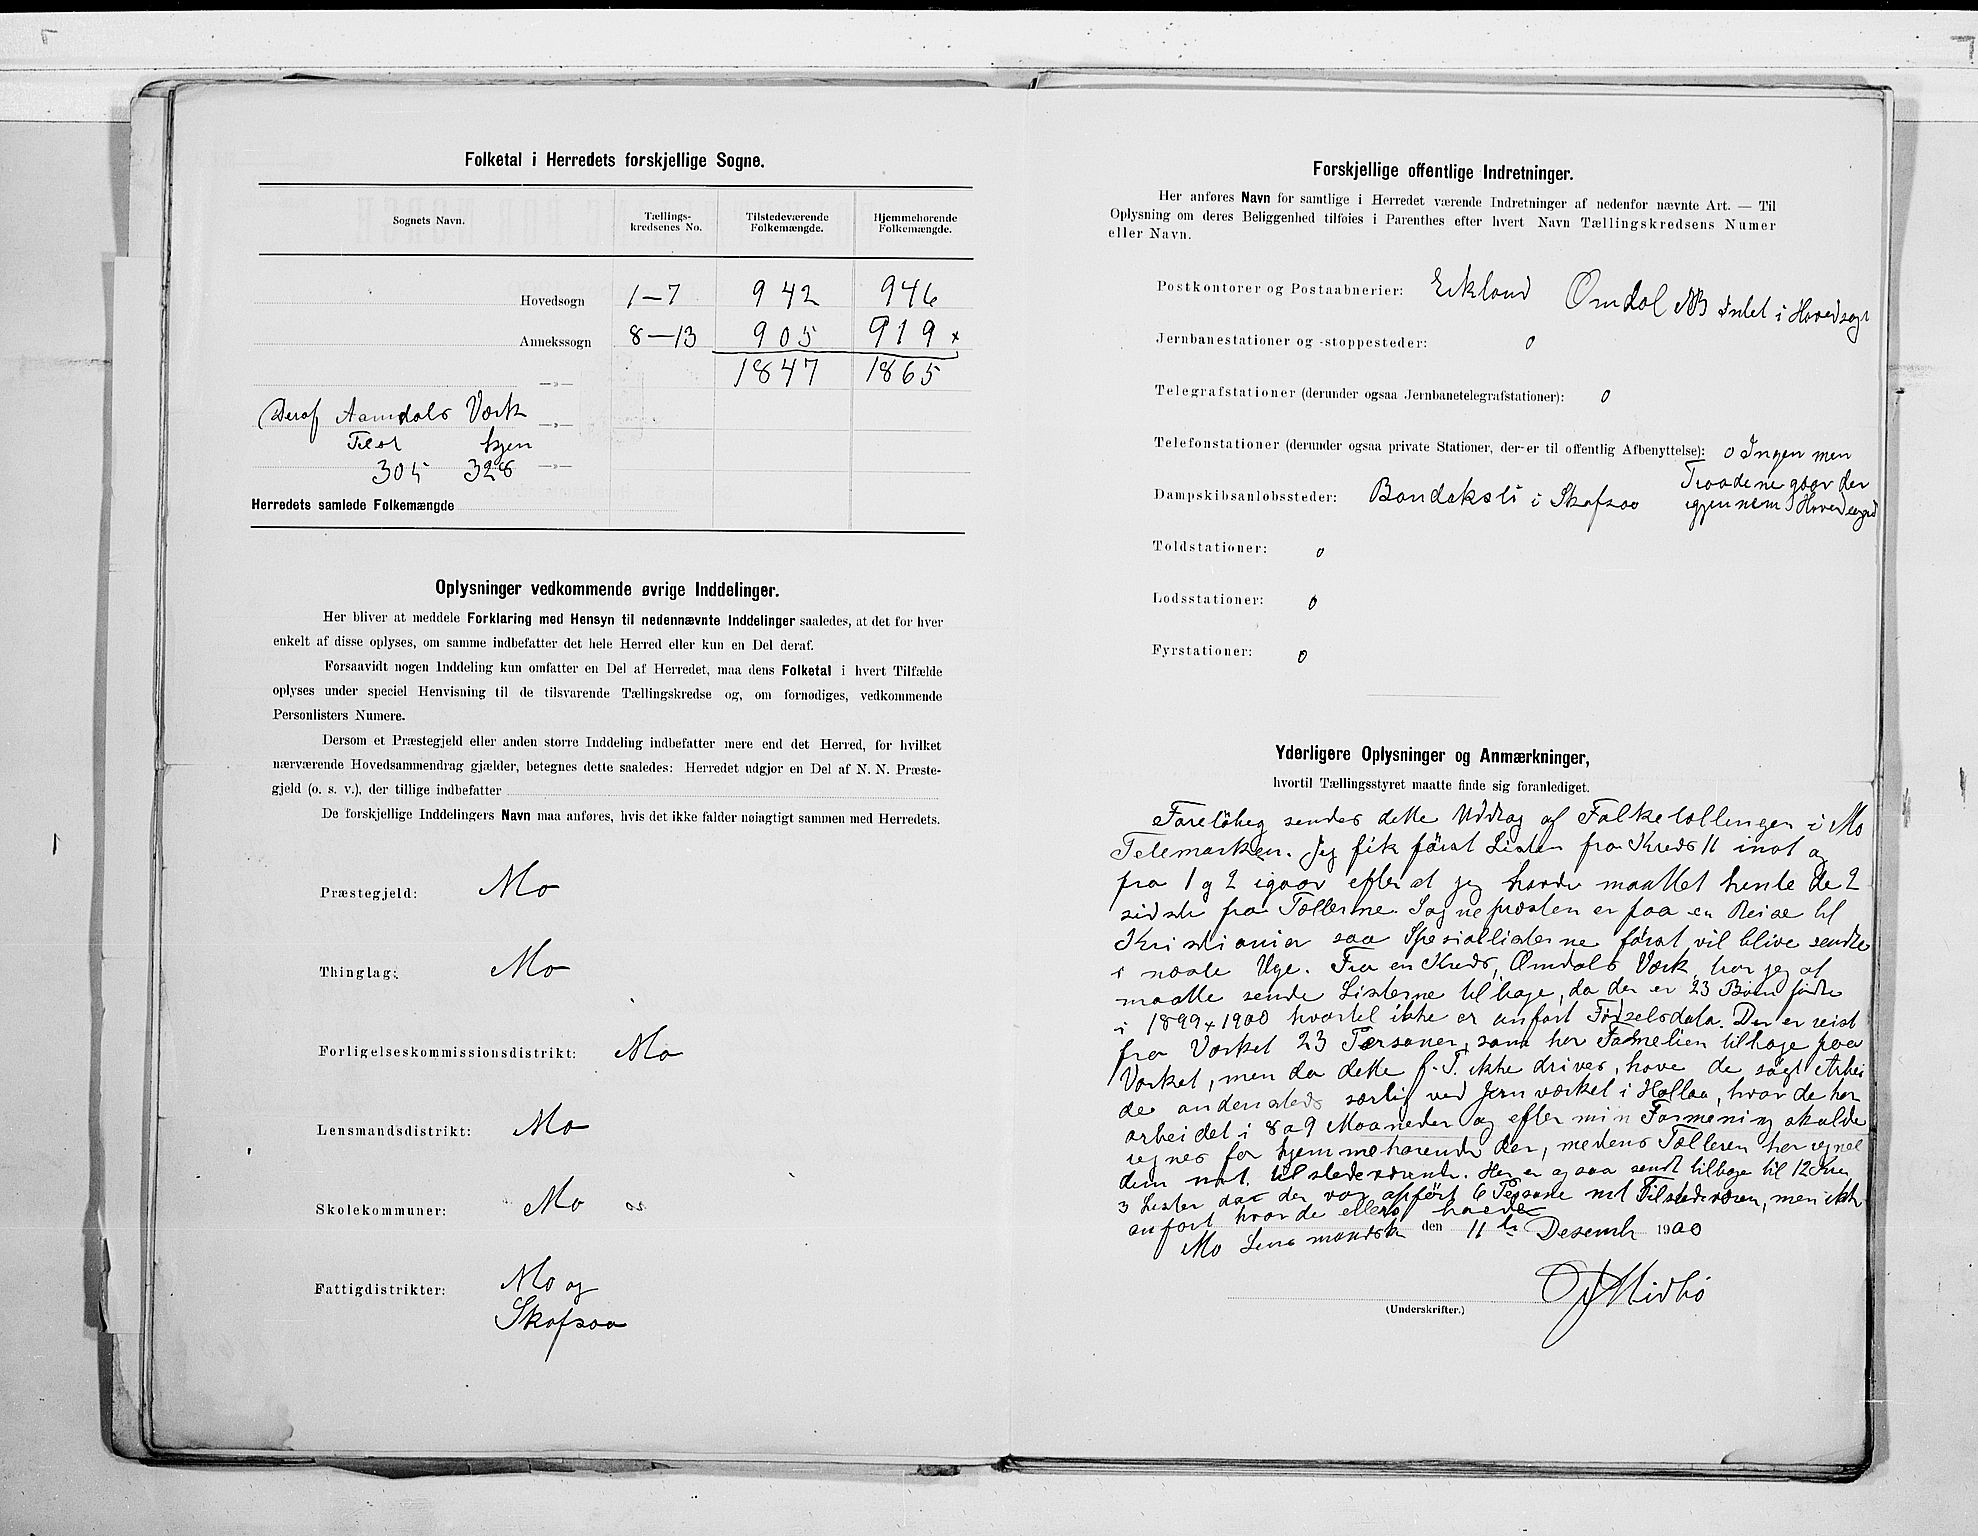 Folketal i Herredets forskjellige Sogne.
Sognets Navn.
Tællings-
kredsenes No.
Tilstedeværende
Folkemængde.
Hjemmehørende
Folkemængde.
Hovedsogn 1—7 942 946
Annekssogn 8—13 905 919 x
—„— 1847 1865
Deraf Aamdals Værk —„—
Tilst hjem
305 328 —„—
Herredets samlede Folkemængde
Oplysninger vedkommende øvrige Inddelinger.
Her bliver at meddele Forklaring med Hensyn til nedennævnte Inddelinger saaledes, at det for hver
enkelt af disse oplyses, om samme indbefatter det hele Herred eller kun en Del deraf.
Forsaavidt nogen Inddeling kun omfatter en Del af Herredet, maa dens Folketal i hvert Tilfælde
oplyses under speciel Henvisning til de tilsvarende Tællingskredse og, om fornødiges, vedkommende
Personlisters Numere.
Dersom et Præstegjeld eller anden større Inddeling indbefatter mere end det Herred, for hvilket
nærværende Hovedsammendrag gjælder, betegnes dette saaledes: Herredet udgjør en Del af N. N. Præste-
gjeld (o. s. v.), der tillige indbefatter
De forskjellige Inddelingers Navn maa anføres, hvis det ikke falder nøiagtigt sammen med Herredets.
Præstegjeld: Mo
Thinglag: Mo
Forligelseskommissionsdistrikt: Mo
Lensmandsdistrikt: Mo
Skolekommuner: Mo
Fattigdistrikter: Mo og
Skafsaa
Forskjellige offentlige Indretninger.
Her anføres Navn for samtlige i Herredet værende Indretninger af nedenfor nævnte Art. — Til
Oplysning om deres Beliggenhed tilføies i Parenthes efter hvert Navn Tællingskredsens Numer
eller Navn.
Postkontorer og Postaabnerier: Eikland Omdal NB Intet i Hovedsogn
Jernbanestationer og -stoppesteder: 0
Telegrafstationer (derunder ogsaa Jernbanetelegrafstationer): 0
Telefonstationer (derunder ogsaa private Stationer, der er til offentlig Afbenyttelse): 0 Ingen men
Traadene gaar der
igjennem Hovedsognet
Dampskibsanløbssteder: Bandaksli i Skafsaa
Toldstationer: 0
Lodsstationer: 0
Fyrstationer: 0
Yderligere Oplysninger og Anmærkninger,
hvortil Tællingsstyret maatte finde sig foranlediget.
Foreløbig sendes dette Uddrag af Folketællingen i Mo
Telemarken. Jeg fik først Listen fra Kreds 11 inat og
fra 1 og 2 igaar efterat jeg havde maattet hente de 2
sidste fra Tællerne. Sognepræsten er paa en Reise til
Kristiania saa Spesiallisterne først vil blive sendte
i næste Uge. Fra en Kreds, Omdals Værk har jeg at
maatte sende Listerne tilbage, da der er 23 Børn fødte
i 1899 x 1900 hvortil ikke er anført Fødselsdata. Der er reist
fra Værket 23 Personer, som har Familien tilbage paa
Værket, men da dette f. T. ikke drives, have de søgt Arbei
de andensteds særlig ved Jernværket i Hollaa, hvor de har
arbeidet i 8 a 9 Maaneder og efter min Formening skulde
regnes for hjemmehørende der, medens Tælleren har regnet
dem mt. tilstedeværende. Her er ogsaa sendt tilbage til 12 Kre
3 Lister da der var opført 6 Persone mt Tilstedeværen, men ikke
anført hvor de ellers havde
Mo Lensmandsk den 11te Desemb 1900
Midbø
(Underskrifter.)